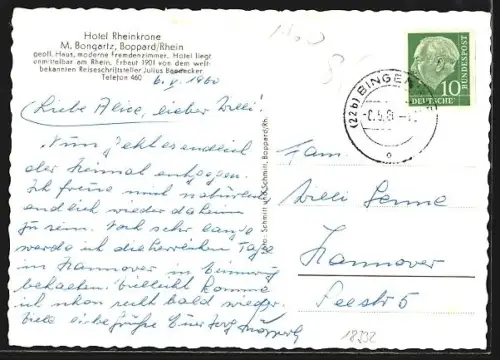 Hotel Rheinkrone
M. Bongartz, Boppard/Rhein
gepfl. Haus, moderne Fremdenzimmer. Hotel liegt
unmittelbar am Rhein. Erbaut 1901 von dem welt-
bekannten Reiseschriftsteller Julius
Telefon 460
1960
Liebe Alice, lieber Willi!
Nun geht es endlich
der Heimat entgegen.
Ich freue mich natürlich
endlich wieder daheim
zu sein. Noch sehr lange
werde ich die herrlichen Tage
in Hannover in Erinnerung
behalten. Vielleicht komme
ich schon recht bald wieder.
Viele liebe Grüße Euer
Schmitt
Boppard/Rh.
10
DEUTSCHE BUNDESPOST
(22b) BINGEN
Fam.
Willi
Hannover
Seestr 5
18232